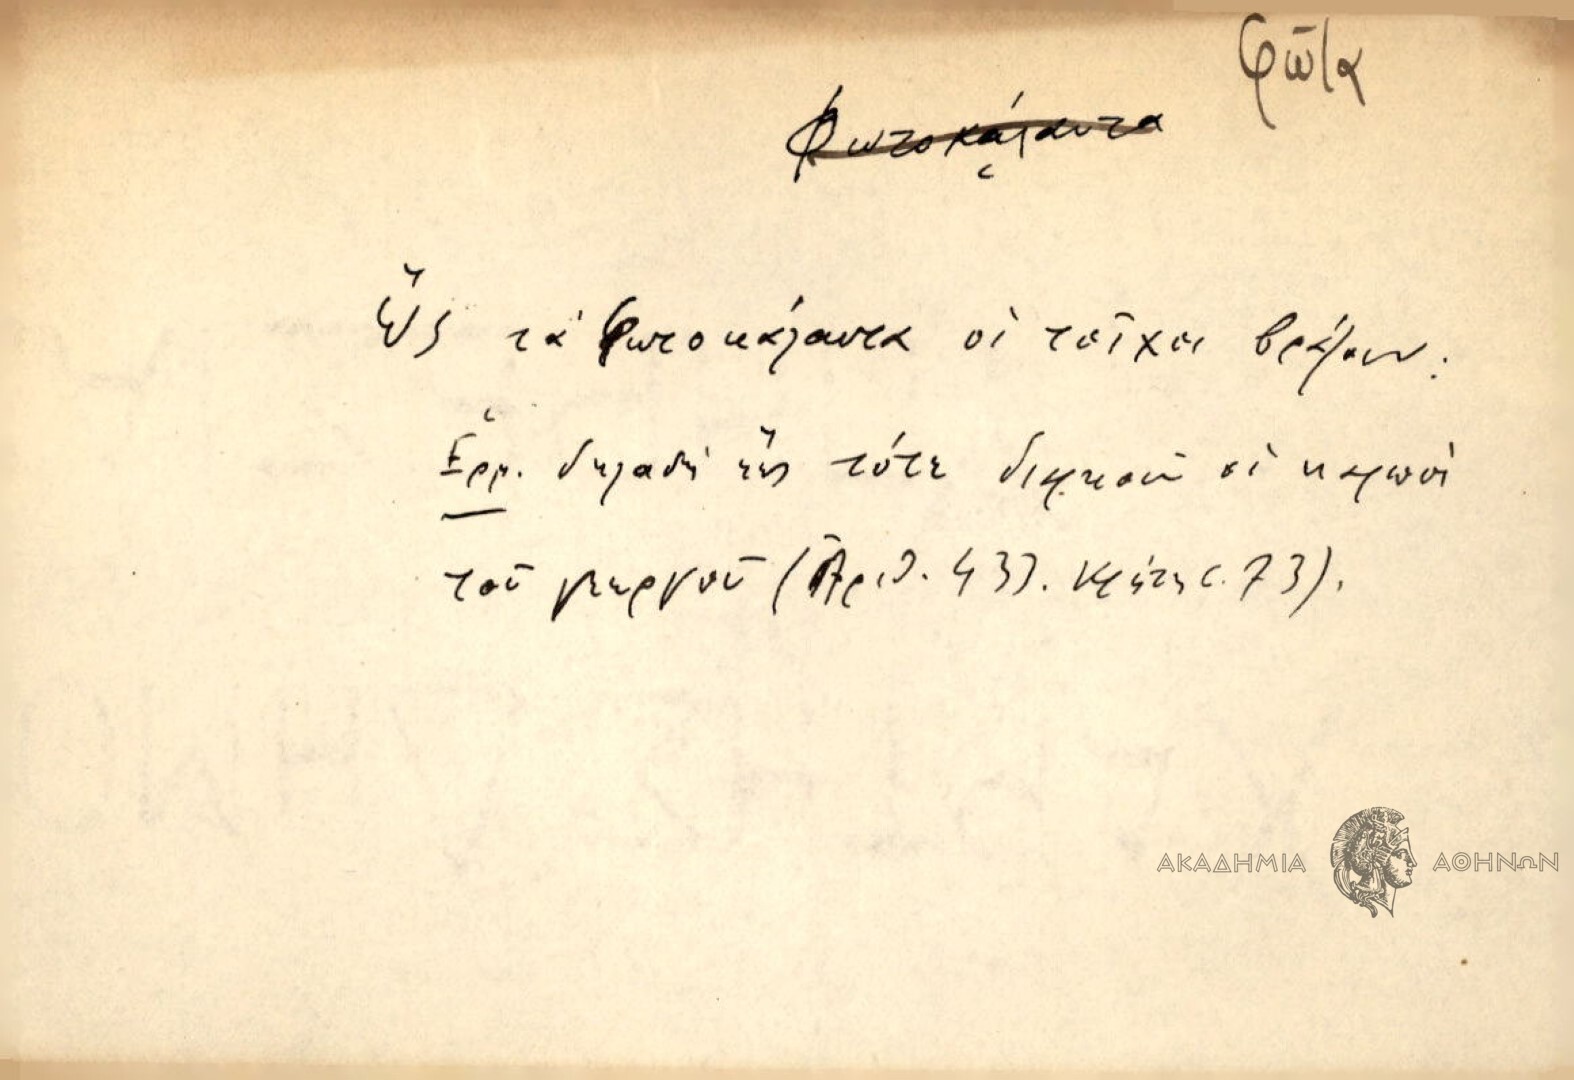 Φῶτα
Φωτοκάλαντα
Ὥς τὰ Φωτοκάλαντα οἱ τοῖχοι βράζουν.
Ἑρμ. δηλαδὴ ὥς τότε διαρκοῦν οἱ καρποὶ
τοῦ γεωργοῦ (Ἀριθ. 433. Κρήτη σ. 73).
ΑΚΑΔΗΜΙΑ ΑΘΗΝΩΝ